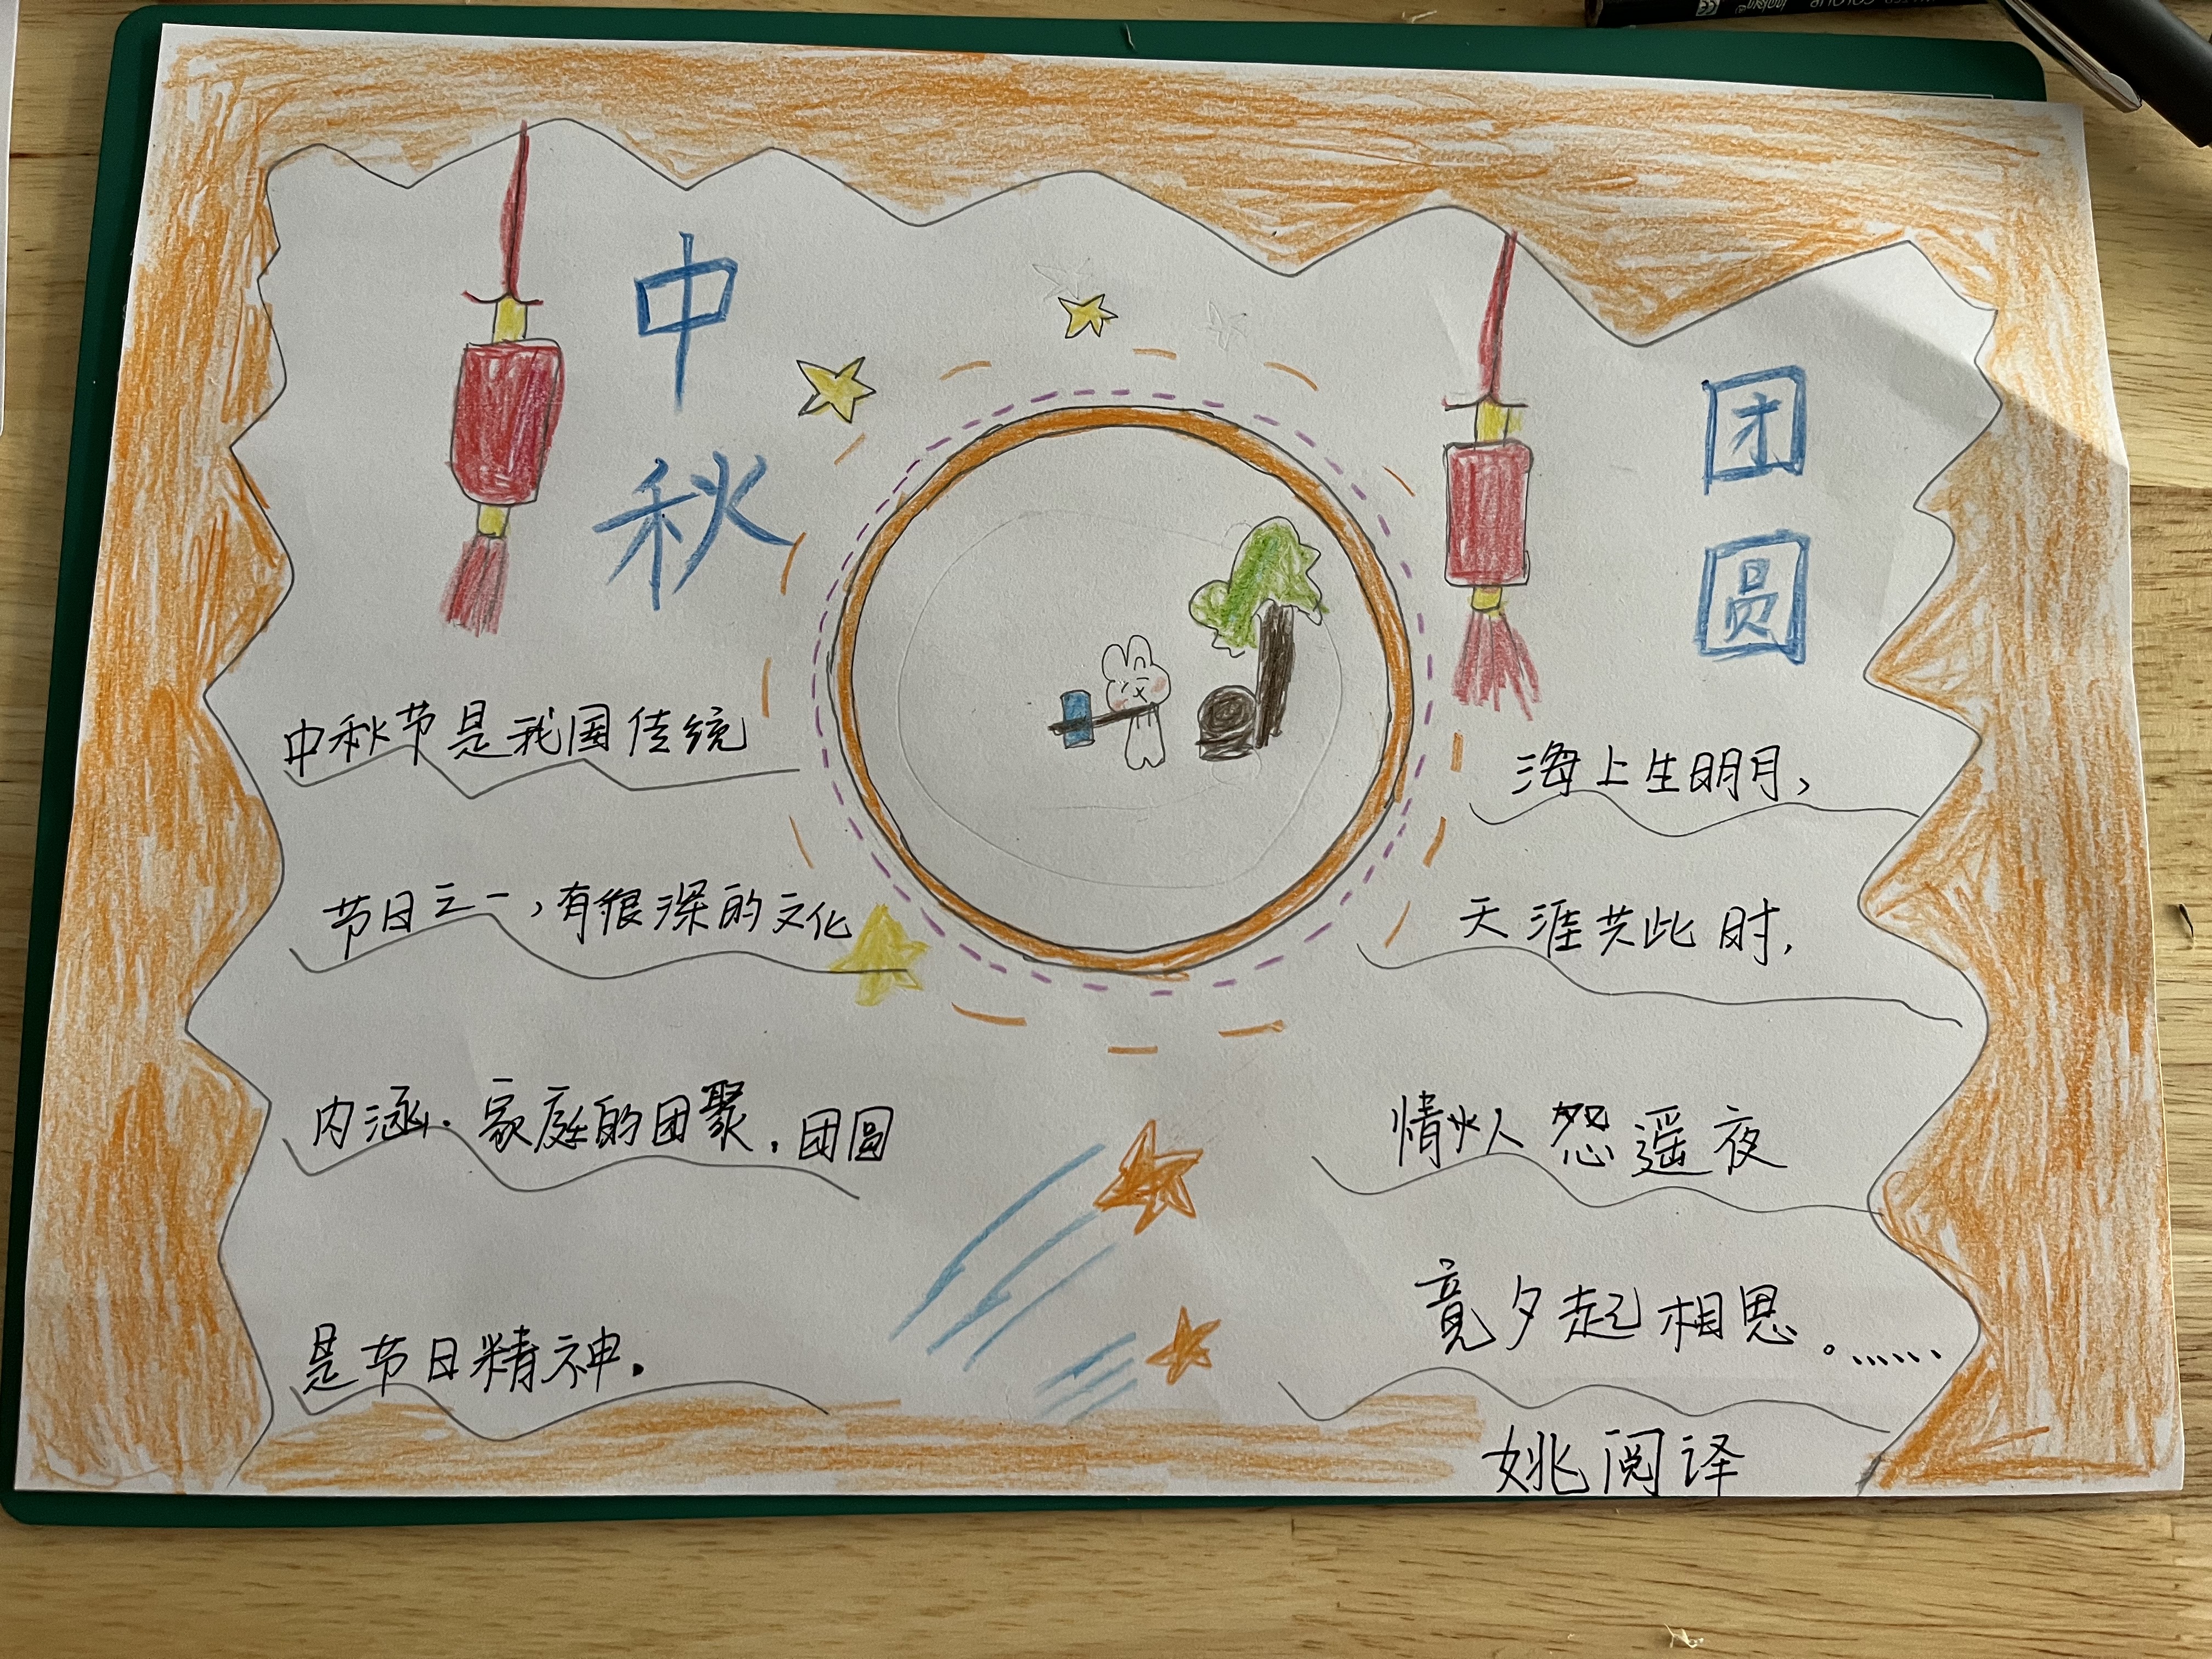 中秋
团圆
中秋节是我国传统
节日之一，有很深的文化
内涵.家庭的团聚.团圆
是节日精神.
海上生明月，
天涯共此时.
情人怨遥夜
竟夕起相思。......
姚阅译